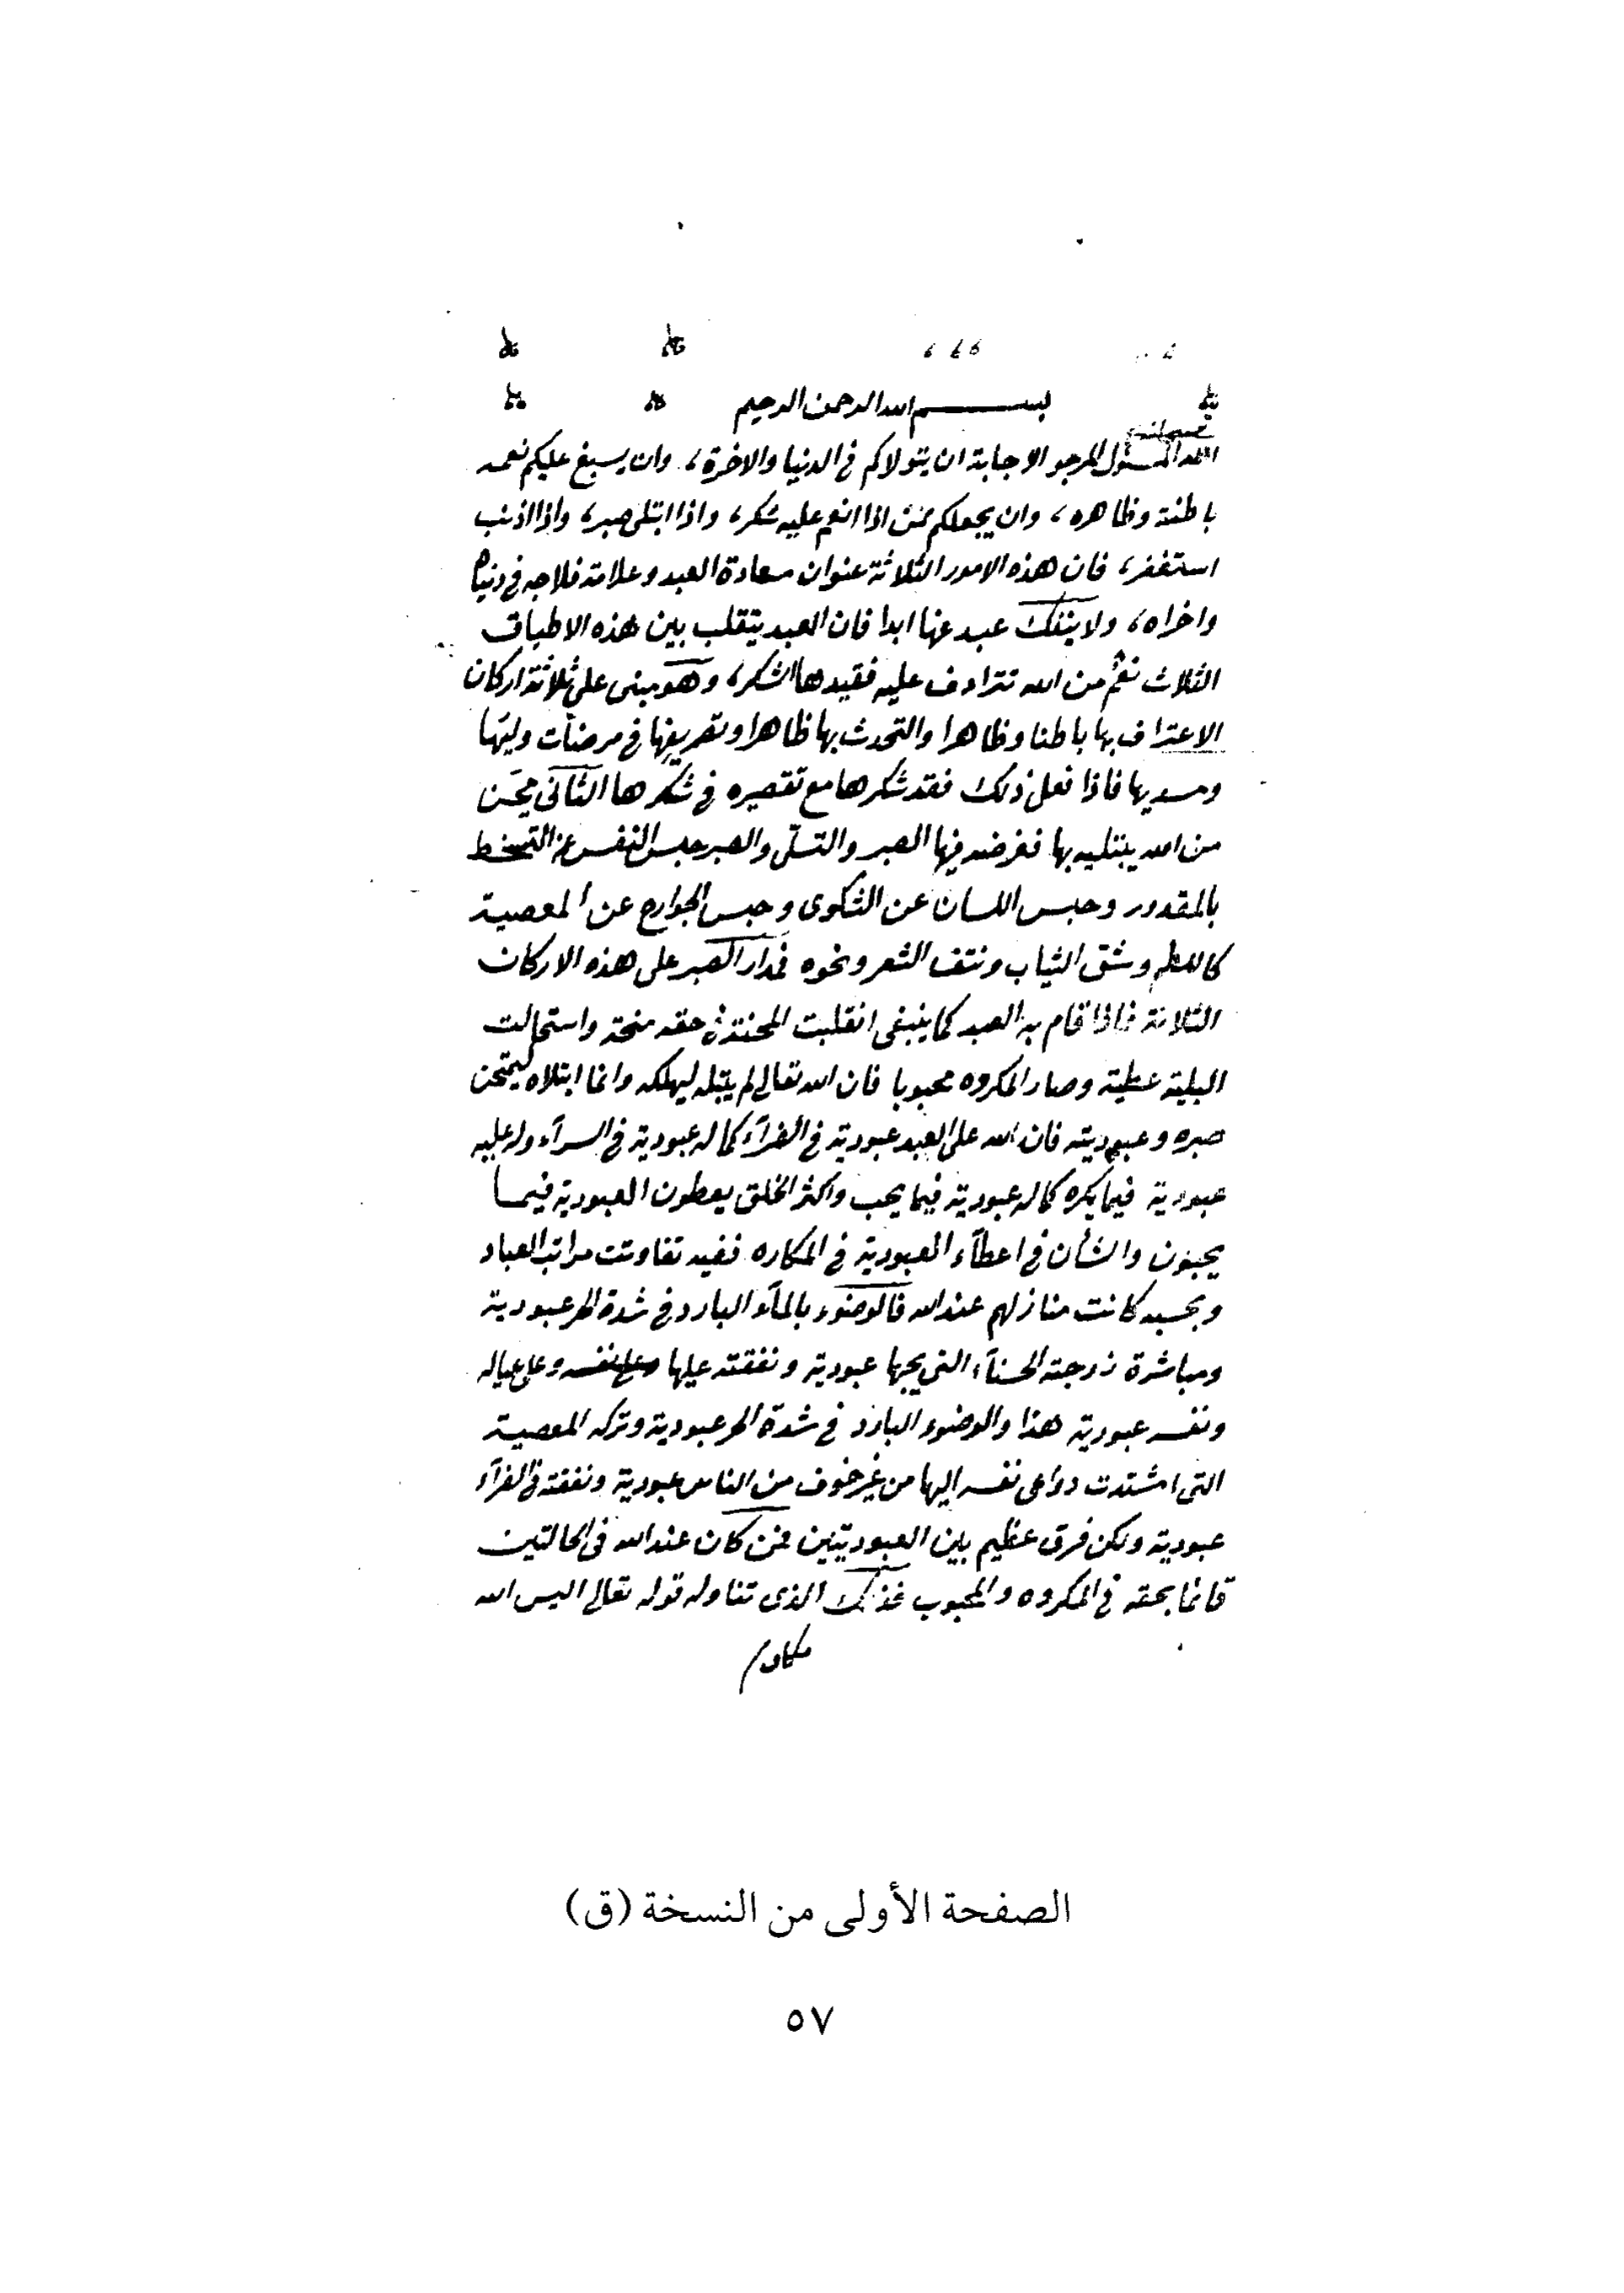 بسم الله الرحمن الرحيم
الله المسئول المرجو الاجابة ان يتولاكم في الدنيا والاخرة، وان يسبغ عليكم نعمه
باطنة وظاهره، وان يجعلكم ممن اذا انعم عليه شكر، واذا ابتلى صبر، واذا اذنب
استغفر، فان هذه الامور الثلاثة عنوان سعادة العبد وعلامة فلاحه في دنياه
واخراه، ولا ينفك عبد عنها ابدا فان العبد يتقلب بين هذه الاطباق
الثلاث نعمٌ من الله تترادف عليه فقيدها الشكر، وهو مبنى على ثلاثة اركان
الاعتراف بها باطنا وظاهرا والتحدث بها ظاهرا وتصريفها في مرضات وليّها
ومسديها فاذا فعل ذلك فقد شكرها مع تقصيره في شكرها الثانى محَن
من الله يبتليه بها ففرضه فيها الصبر والتسلّى والصبر حبس النفس عن التسخط
بالمقدور وحبس اللسان عن الشكوى وحبس الجوارح عن المعصية
كاللطم وشق الثياب ونتف الشعر ونحوه فمدار الصبر على هذه الاركان
الثلاثة فاذا قام به العبد كما ينبغى انقلبت المحنة في حقه منحة واستحالت
البلية عطية وصار المكروه محبوبا فان الله تعالى لم يبتله ليهلكه وانما ابتلاه ليمتحن
صبره وعبوديته فان لله على العبد عبودية في الضرآء كما له عبودية في السرآء وله عليه
عبودية فيما يكره كما له عبودية فيما يحب واكثر الخلق يعطون العبودية فيما
يحبون والشأن في اعطآء العبودية في المكاره ففيه تفاوتت مراتب العباد
وبحسبه كانت منازلهم عند الله فالوضوء بالمآء البارد في شدة الحر عبودية
ومباشرة زوجته الحسنآء التى يحبها عبودية ونفقته عليها وعلى نفسه وعلى عياله
ونفسه عبودية هذا والوضوء البارد في شدة الحر عبودية وتركه المعصية
التى اشتدت دواعى نفسه اليها من غير خوف من الناس عبودية ونفقته في الضرآء
عبودية ولكن فرق عظيم بين العبوديتين فمن كان عند الله في الحالتين
قائما بحقه في المكروه والمحبوب فذلك الذى تناوله قوله تعالى اليس الله
الصفحة الأولى من النسخة (ق)
٥٧